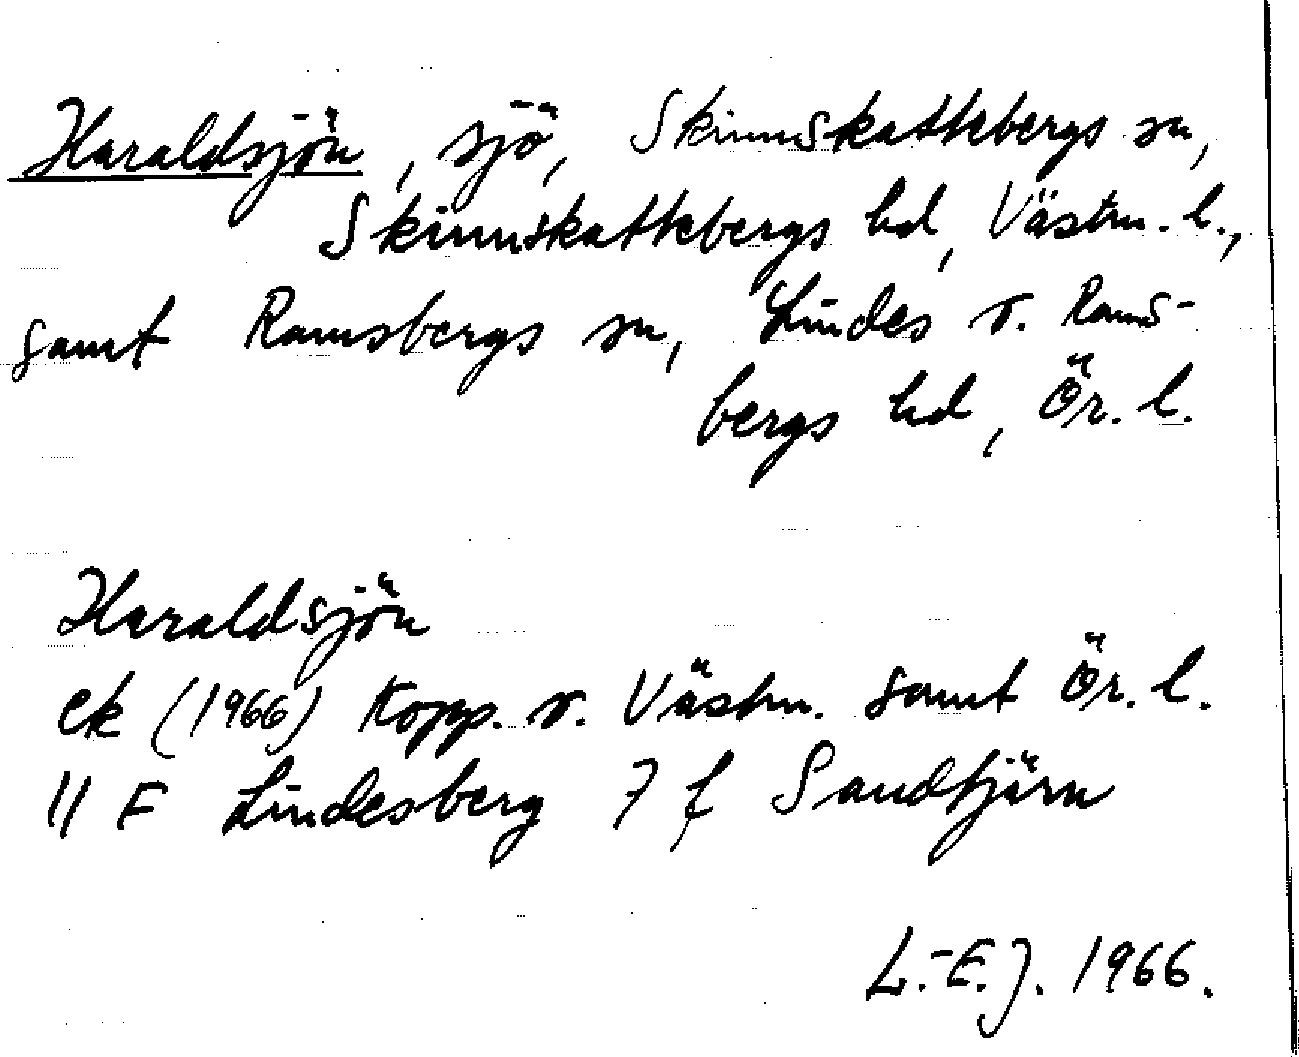 Haraldsjön, sjö, Skinnskattebergs sn,
Skinnskattebergs hd, Västm. l.,
samt Ramsbergs sn, Lindes o. Rams-
bergs hd, Ör. l.
Haraldsjön
ek (1966) Kopp. o. Västm. samt Ör. l.
11 F Lindesberg 7 f Sandtjärn
L.-E.J. 1966.